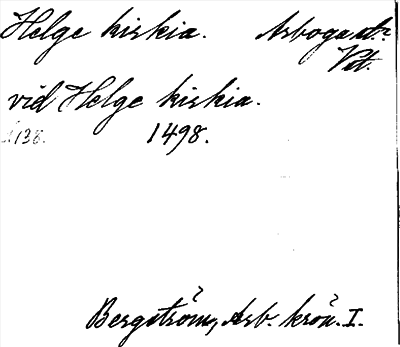 Helge kirkia. Arboga st.
Vst.
vid Helge kirkia.
1498.
Bergström, Arb. krön. I.